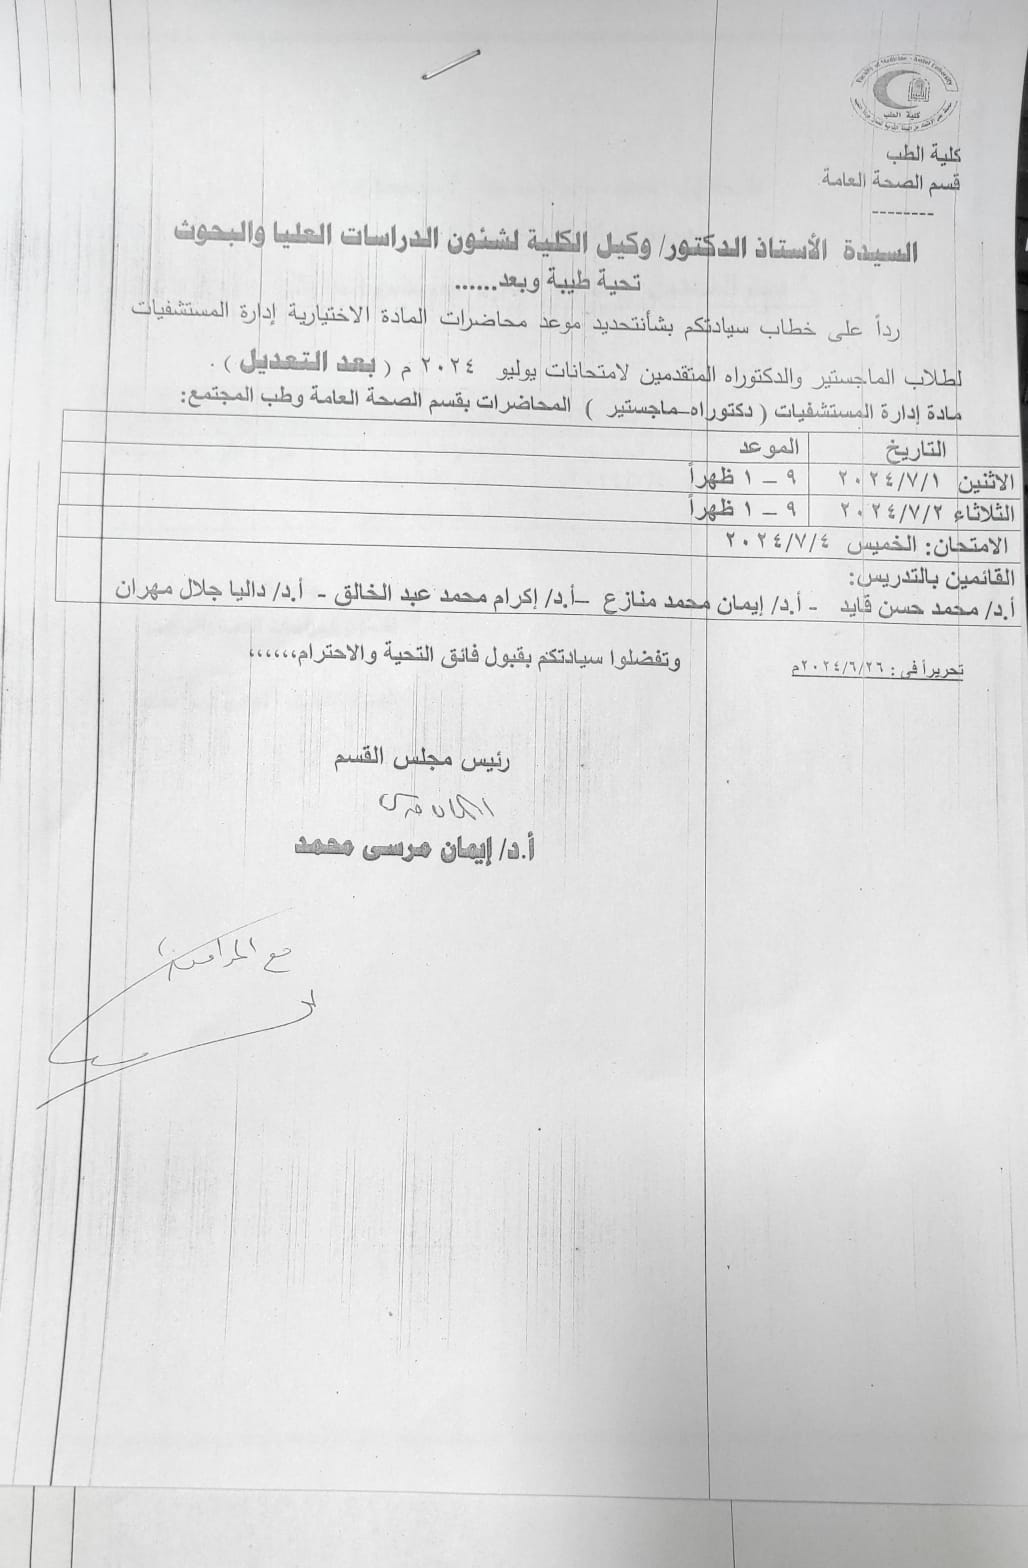 Faculty of Medicine - Assiut University
كلية الطب
كلية الطب
قسم الصحة العامة
--------
السيدة الأستاذ الدكتور/ وكيل الكلية لشئون الدراسات العليا والبحوث
تحية طيبة وبعد......
رداً على خطاب سيادتكم بشأنتحديد موعد محاضرات المادة الاختيارية إدارة المستشفيات
لطلاب الماجستير والدكتوراه المتقدمين لامتحانات يوليو ٢٠٢٤ م ( بعد التعديل ) .
مادة إدارة المستشفيات ( دكتوراه-ماجستير ) المحاضرات بقسم الصحة العامة وطب المجتمع:
التاريخ الموعد
الاثنين ٢٠٢٤/٧/١ ٩ – ١ ظهراً
الثلاثاء ٢٠٢٤/٧/٢ ٩ – ١ ظهراً
الامتحان: الخميس ٢٠٢٤/٧/٤
القائمين بالتدريس:
أ.د/ محمد حسن قايد - أ.د/ إيمان محمد منازع –أ.د/ إكرام محمد عبد الخالق - أ.د/ داليا جلال مهران
وتفضلوا سيادتكم بقبول فائق التحية والاحترام،،،،،،
تحريراً فى : ٢٠٢٤/٦/٢٦م
رئيس مجلس القسم
أ.د/ إيمان مرسى محمد